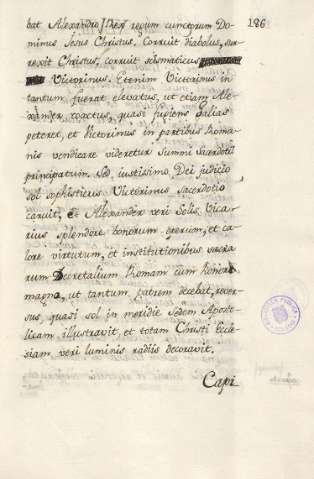 186
bat Alexandro. Rex regum cunctorum Do-
minus Jesus Christus, corruit diabolus, sur-
rexit Christus, corruit schismaticus
Victorinus. Etenim Victorinus in
tantum fuerat elevatus, ut etiam Ale-
xander, coactus, quasi fugiens Galias
peteret, et Victorinus in partibus Roma-
nis vendicare videretur Summi Sacerdotii
principatum. Sed, iustissimo, Dei judicio
sol sophisticus Victorinus Sacerdotio
caruit, & Alexander veri Solis Vica-
rius splendore bonorum operum, et ca-
lore virtutum, et institutionibus sacra-
rum Decretalium Romam cum honore
magno, ut tantum patrem decebat, rever-
sus, quasi sol in meridie Sedem Aposto-
licam illustravit, et totam Christi Eccle-
siam, veri luminis radiis decoravit.
Capi